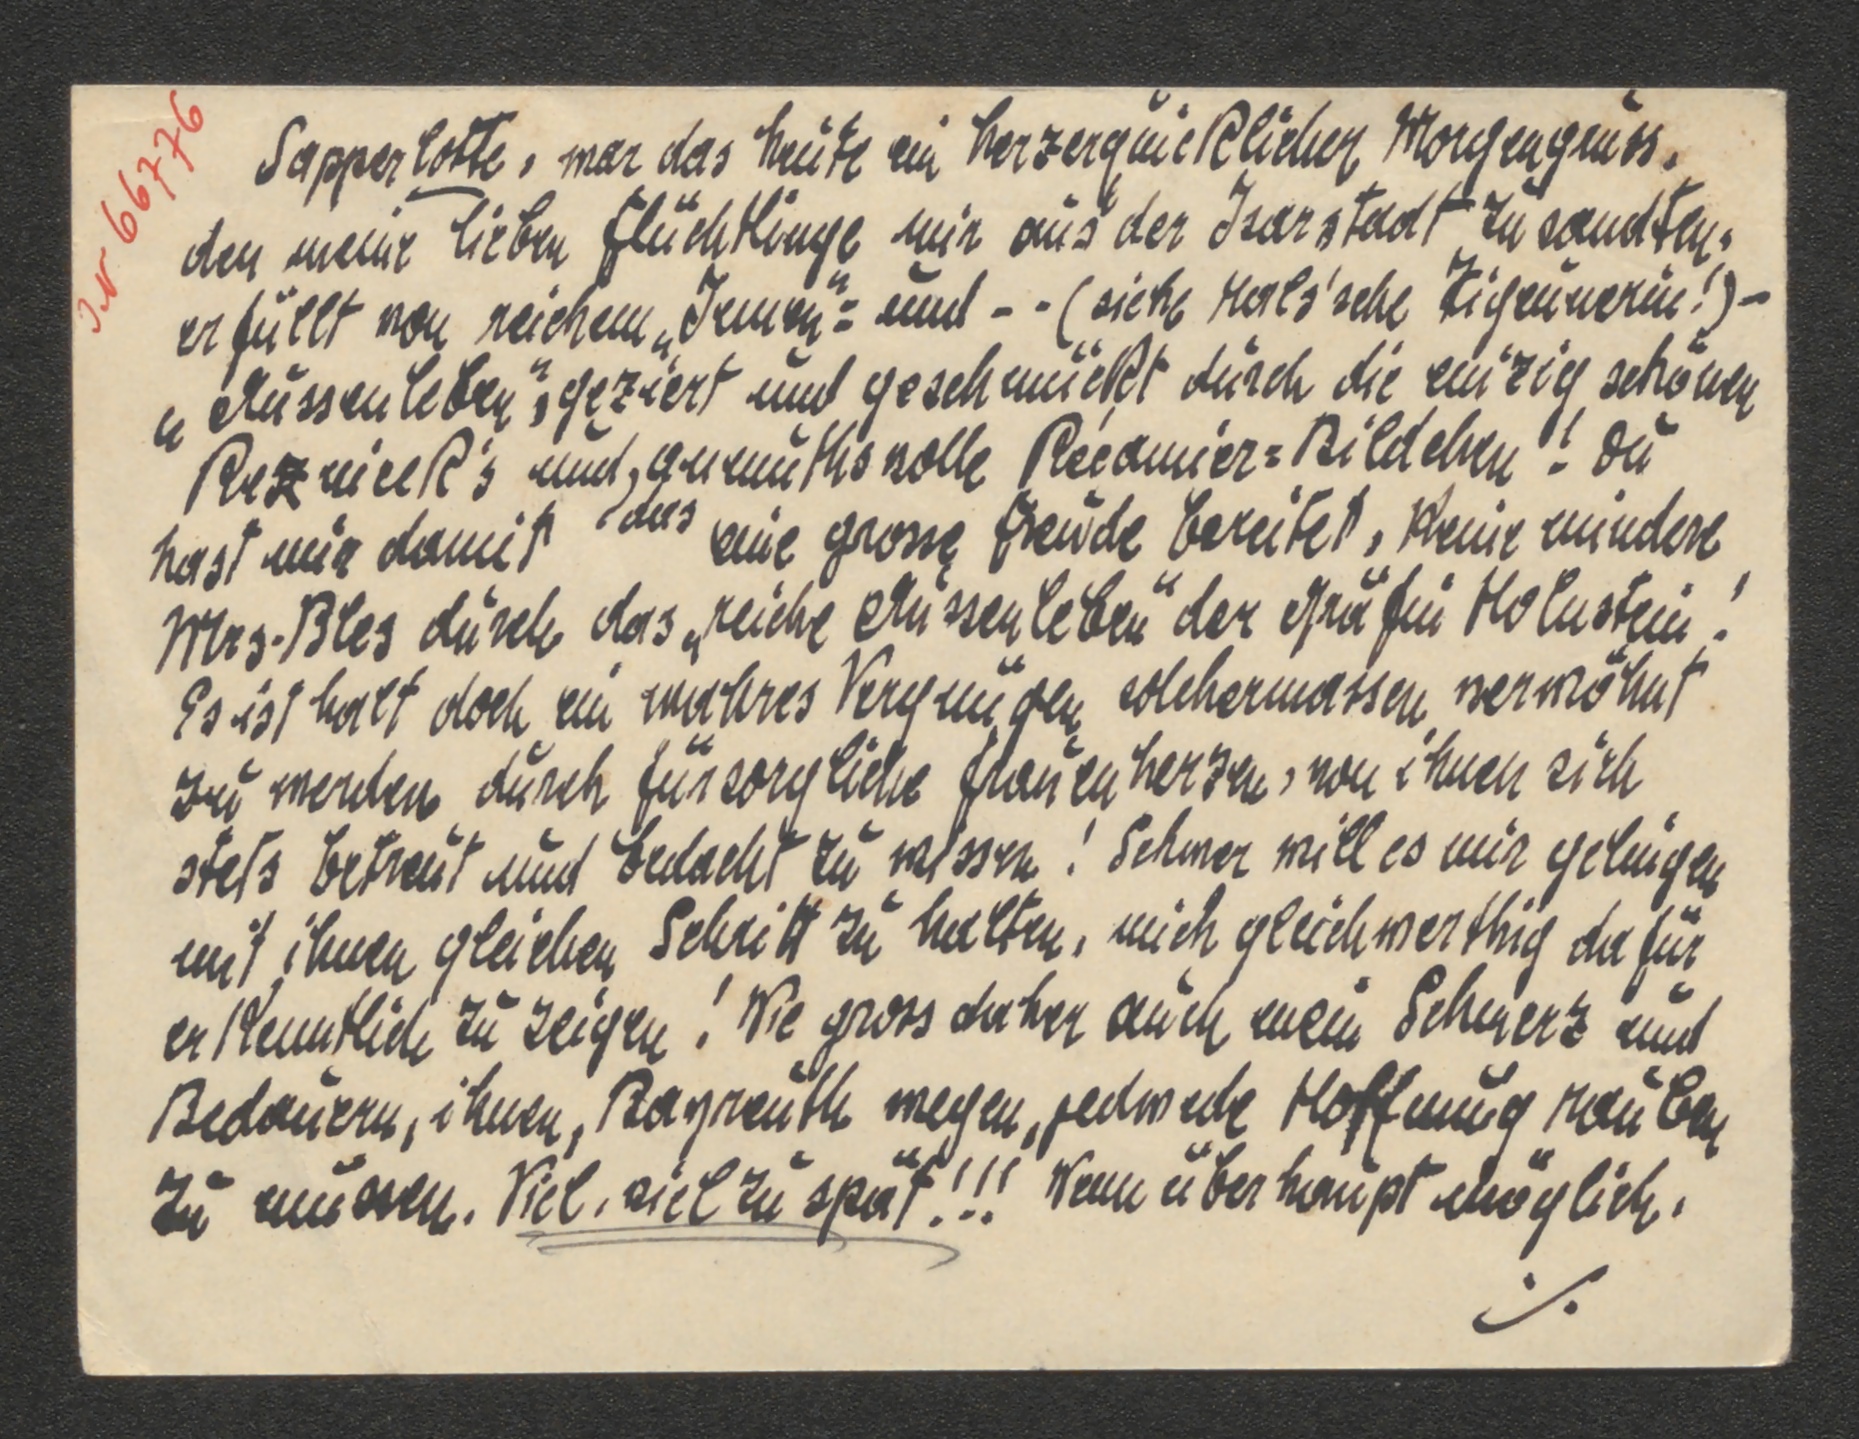 JN 66776
Sapperlotte, war das heute ein herzerquicklicher Morgengruss,
den meine lieben Flüchtlinge mir aus der Isarstadt zu sandten,
erfüllt von reichem „Innen“= und - - (siehe Hals'sche Zigeunerin!) -
„Aussenleben“, geziert und geschmückt durch die einzig schönen
Reznicek's und, anmuthsvolle Récamier=Bildchen! Du
das
hast mir damit eine grosse Freude bereitet, keine mindere
Mrs. Bles durch das „reiche Aussenleben“ der Gräfin Holnstein!
Es ist halt doch ein wahres Vergnügen solchermassen verwöhnt
zu werden durch fürsorgliche Frauenherzen, von ihnen sich
stets betreut und bedacht zu wissen! Schwer will es mir gelingen
mit ihnen gleichen Schritt zu halten, mich gleichwerthig dafür
erkenntlich zu zeigen! Wie gross daher auch mein Schmerz und
Bedauern, ihnen, Bayreuth wegen, jedwede Hoffnung rauben
zu müssen. Viel, viel zu spät!!! Wenn überhaupt möglich,
./.